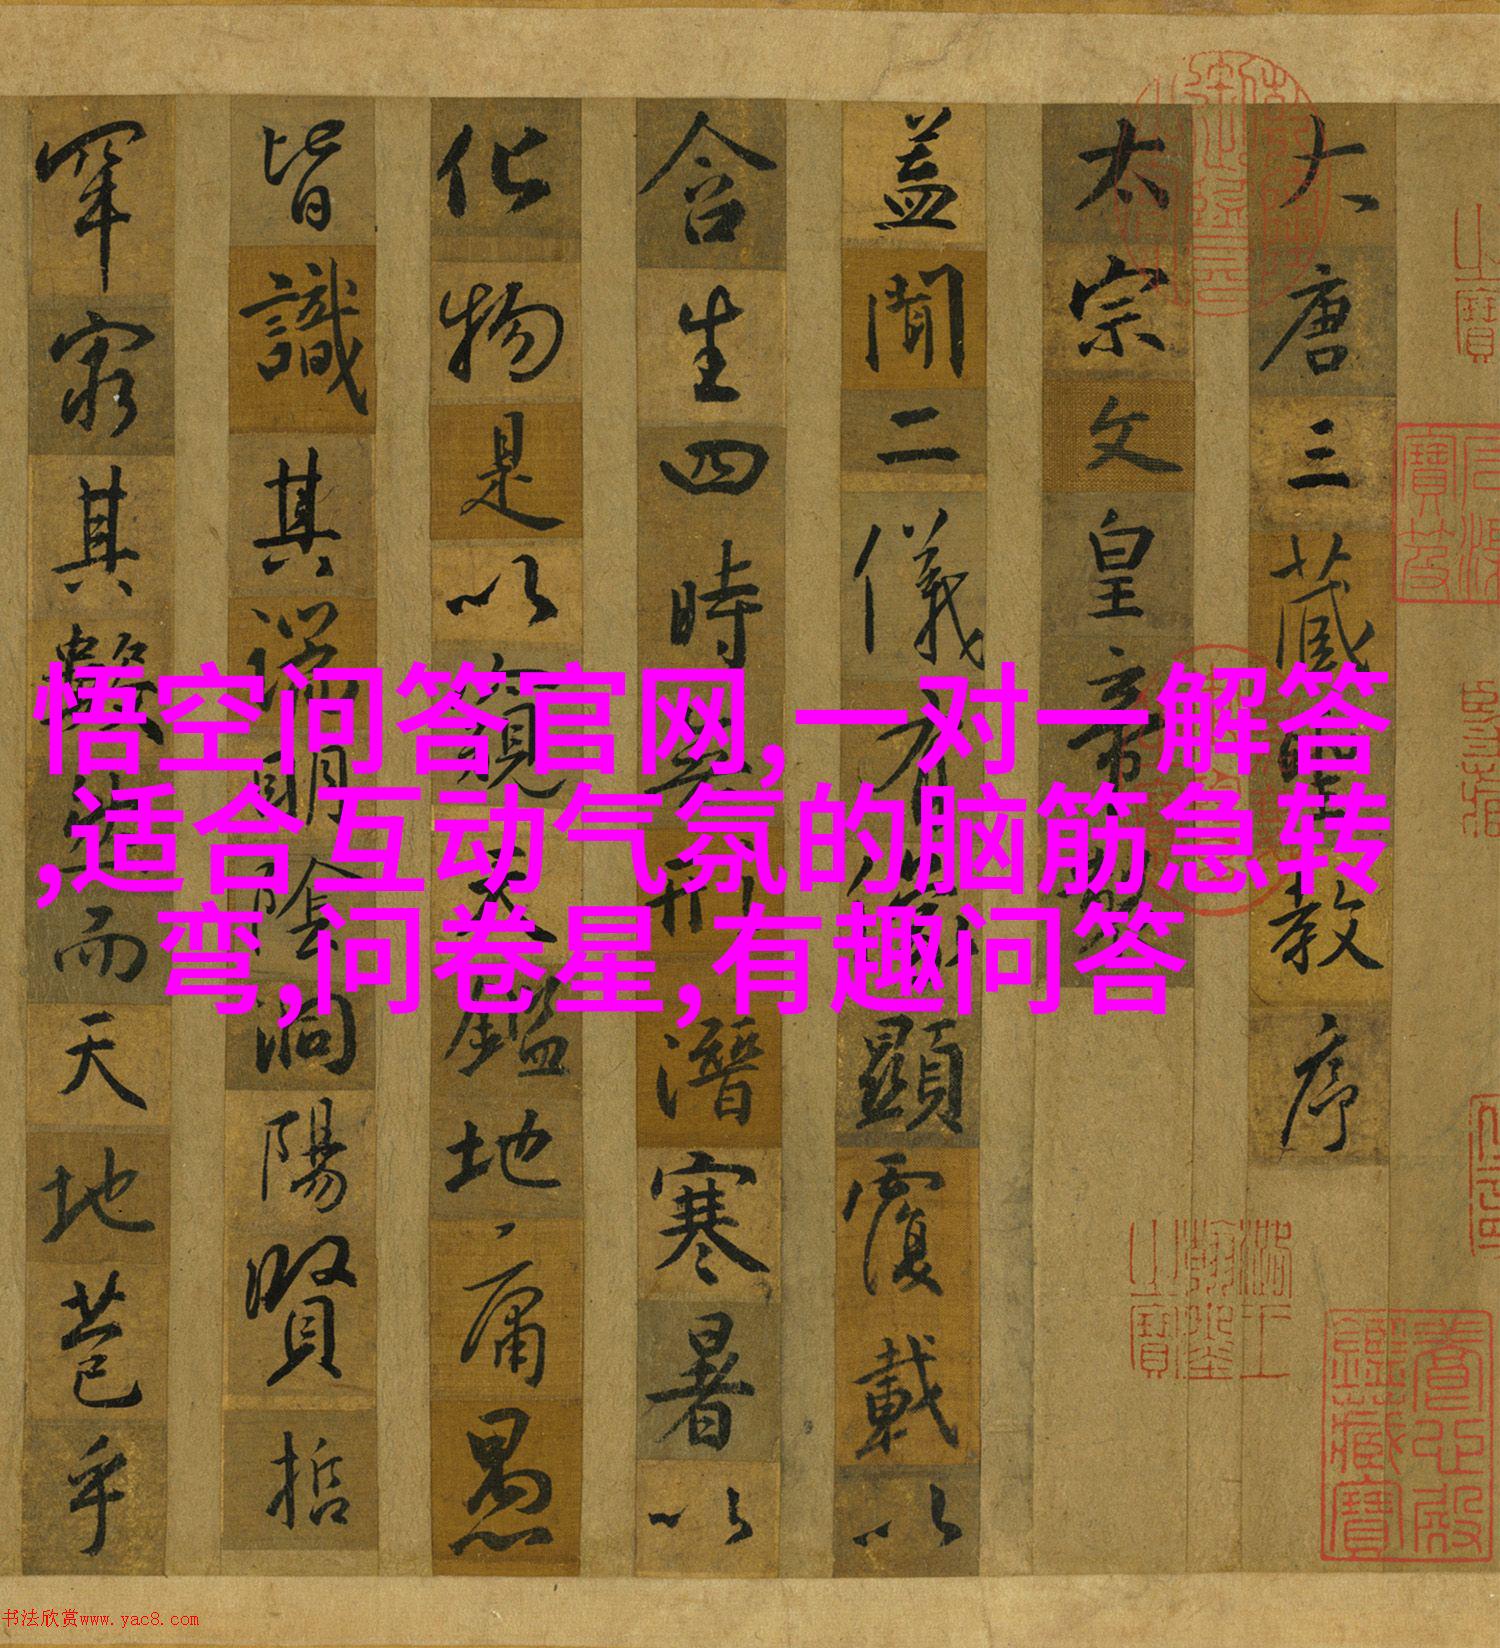 大唐三藏聖教序
太宗文皇帝製
蓋聞二儀有像顯覆載以
含生四時無形潛寒暑以
化物是以窺天鑑地庸愚
皆識其端明陰洞陽賢哲
罕窮其數然而天地苞乎
悟空问答官网,一对一解答
,适合互动气氛的脑筋急转
弯,问卷星,有趣问答
石渠寶笈
養心殿鑑藏寶
书法欣赏www.yac8.com